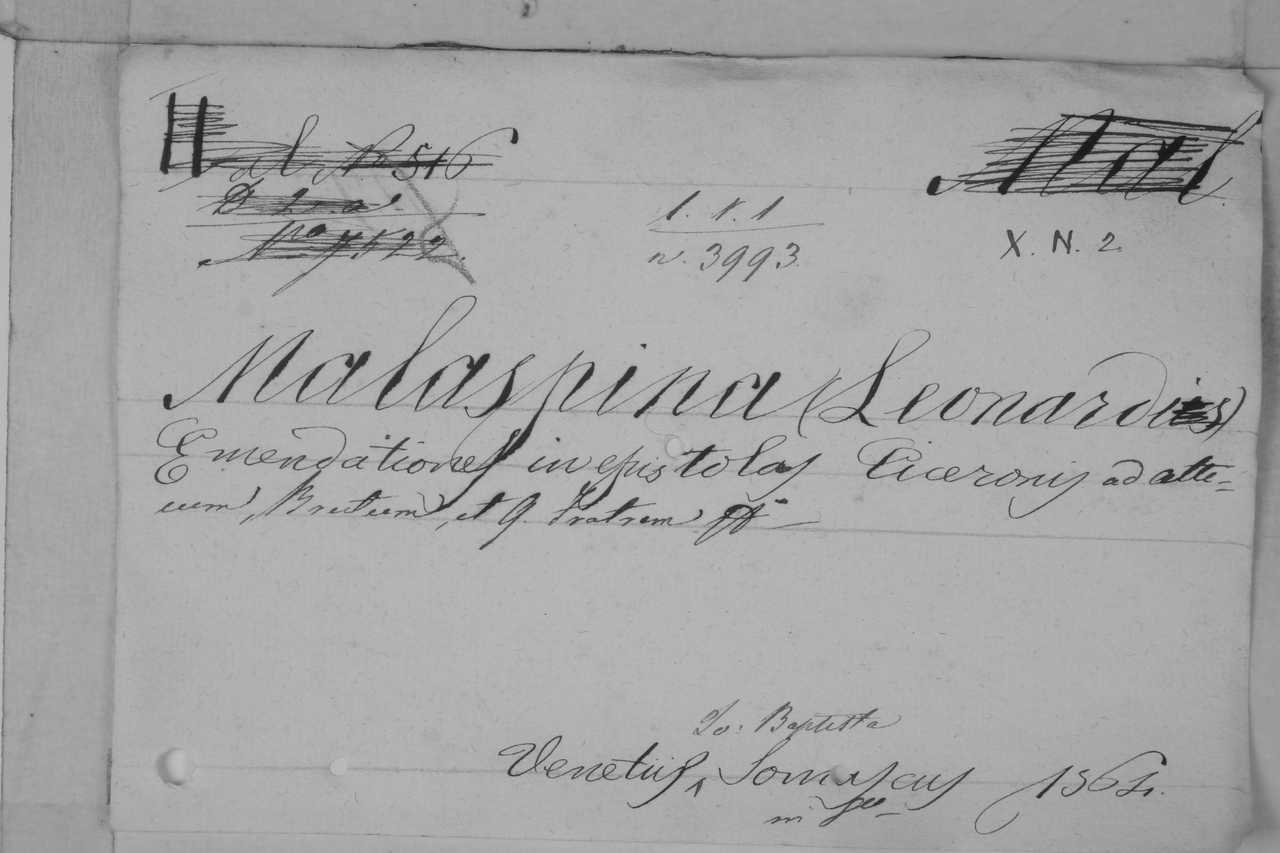 Sal. N.º 516
D 2. a.
N.ro 7522.
1. V. 1
n. 3993.
Mal
X. N. 2.
Malaspina (Leonardus)
Emendationes in epistolas Ciceronis ad atti-
cum, Brutum, et Q. Fratrem
Io. Baptista
Venetiis, Somascus 1564.
in 8.º